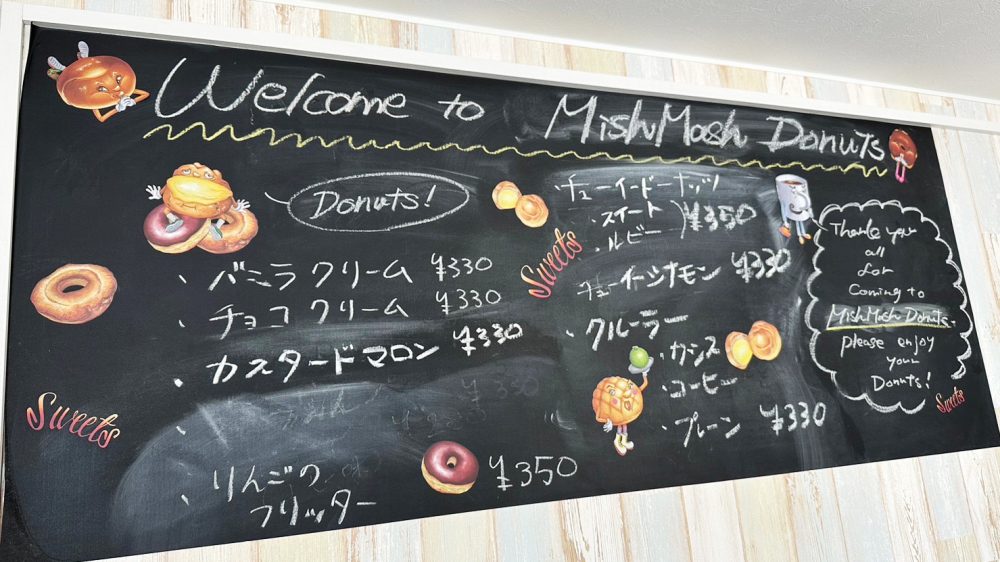 Welcome to MishMash Donuts
Donuts!
・バニラクリーム ¥330
・チョコクリーム ¥330
・カスタードマロン ¥330
・りんごの
フリッター ¥350
Sweets
・チューイードーナッツ
・スイート
・ルビー
¥350
Sweets
チューイーシナモン ¥330
・クルーラー
・カシス
・コーヒー
・プレーン ¥330
Thank you
all
for
coming to
MishMash Donuts.
please enjoy
your
Donuts!
Sweets